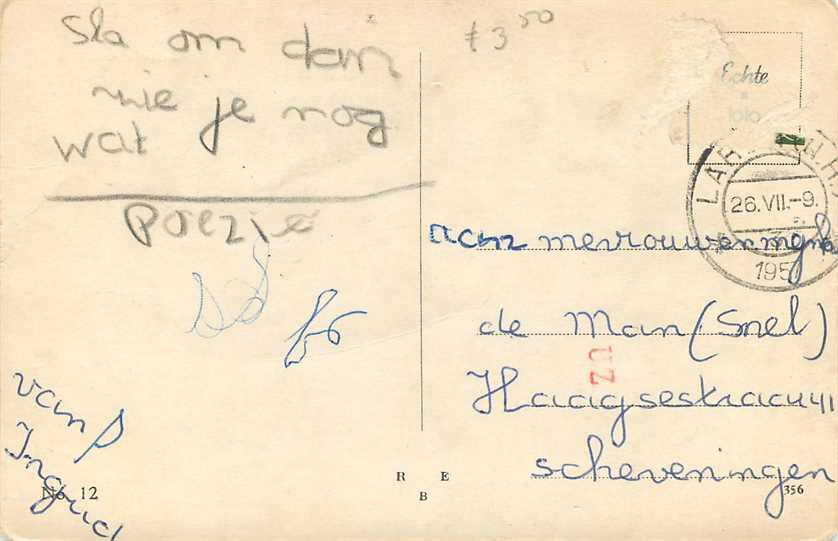 Sla om dan
wie je nog
wat
Poezie
van
Ingrid
No. 12
R E
B
f 3 50
Echte
foto
LAR
26.VII.-9.
195
aan mevrouw en mijnh
de Man (Snel)
Haagsestraat 41
scheveningen
356